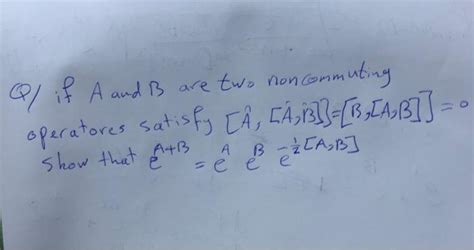 Q/ if A and B are two noncommuting
operatores satisfy [Â, [Â,B̂]]=[B,[A,B]]=0
show that e^{A+B} = e^{A} e^{B} e^{-½[A,B]}